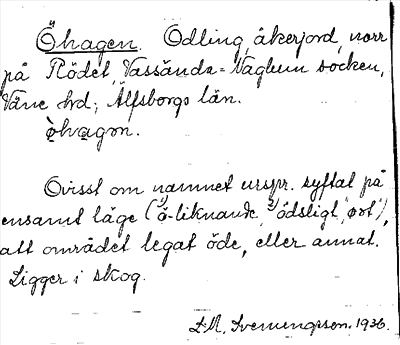 Öhagen. Odling, åkerjord, norr
på Rödet, Vassända-Naglum socken,
Väne hd; Älfsborgs län.
òhagən.
Ovisst om namnet urspr. syftat på
ensamt läge (ö-liknande, ödsligt,
att området legat öde, eller annat.
Ligger i skog.
1936.